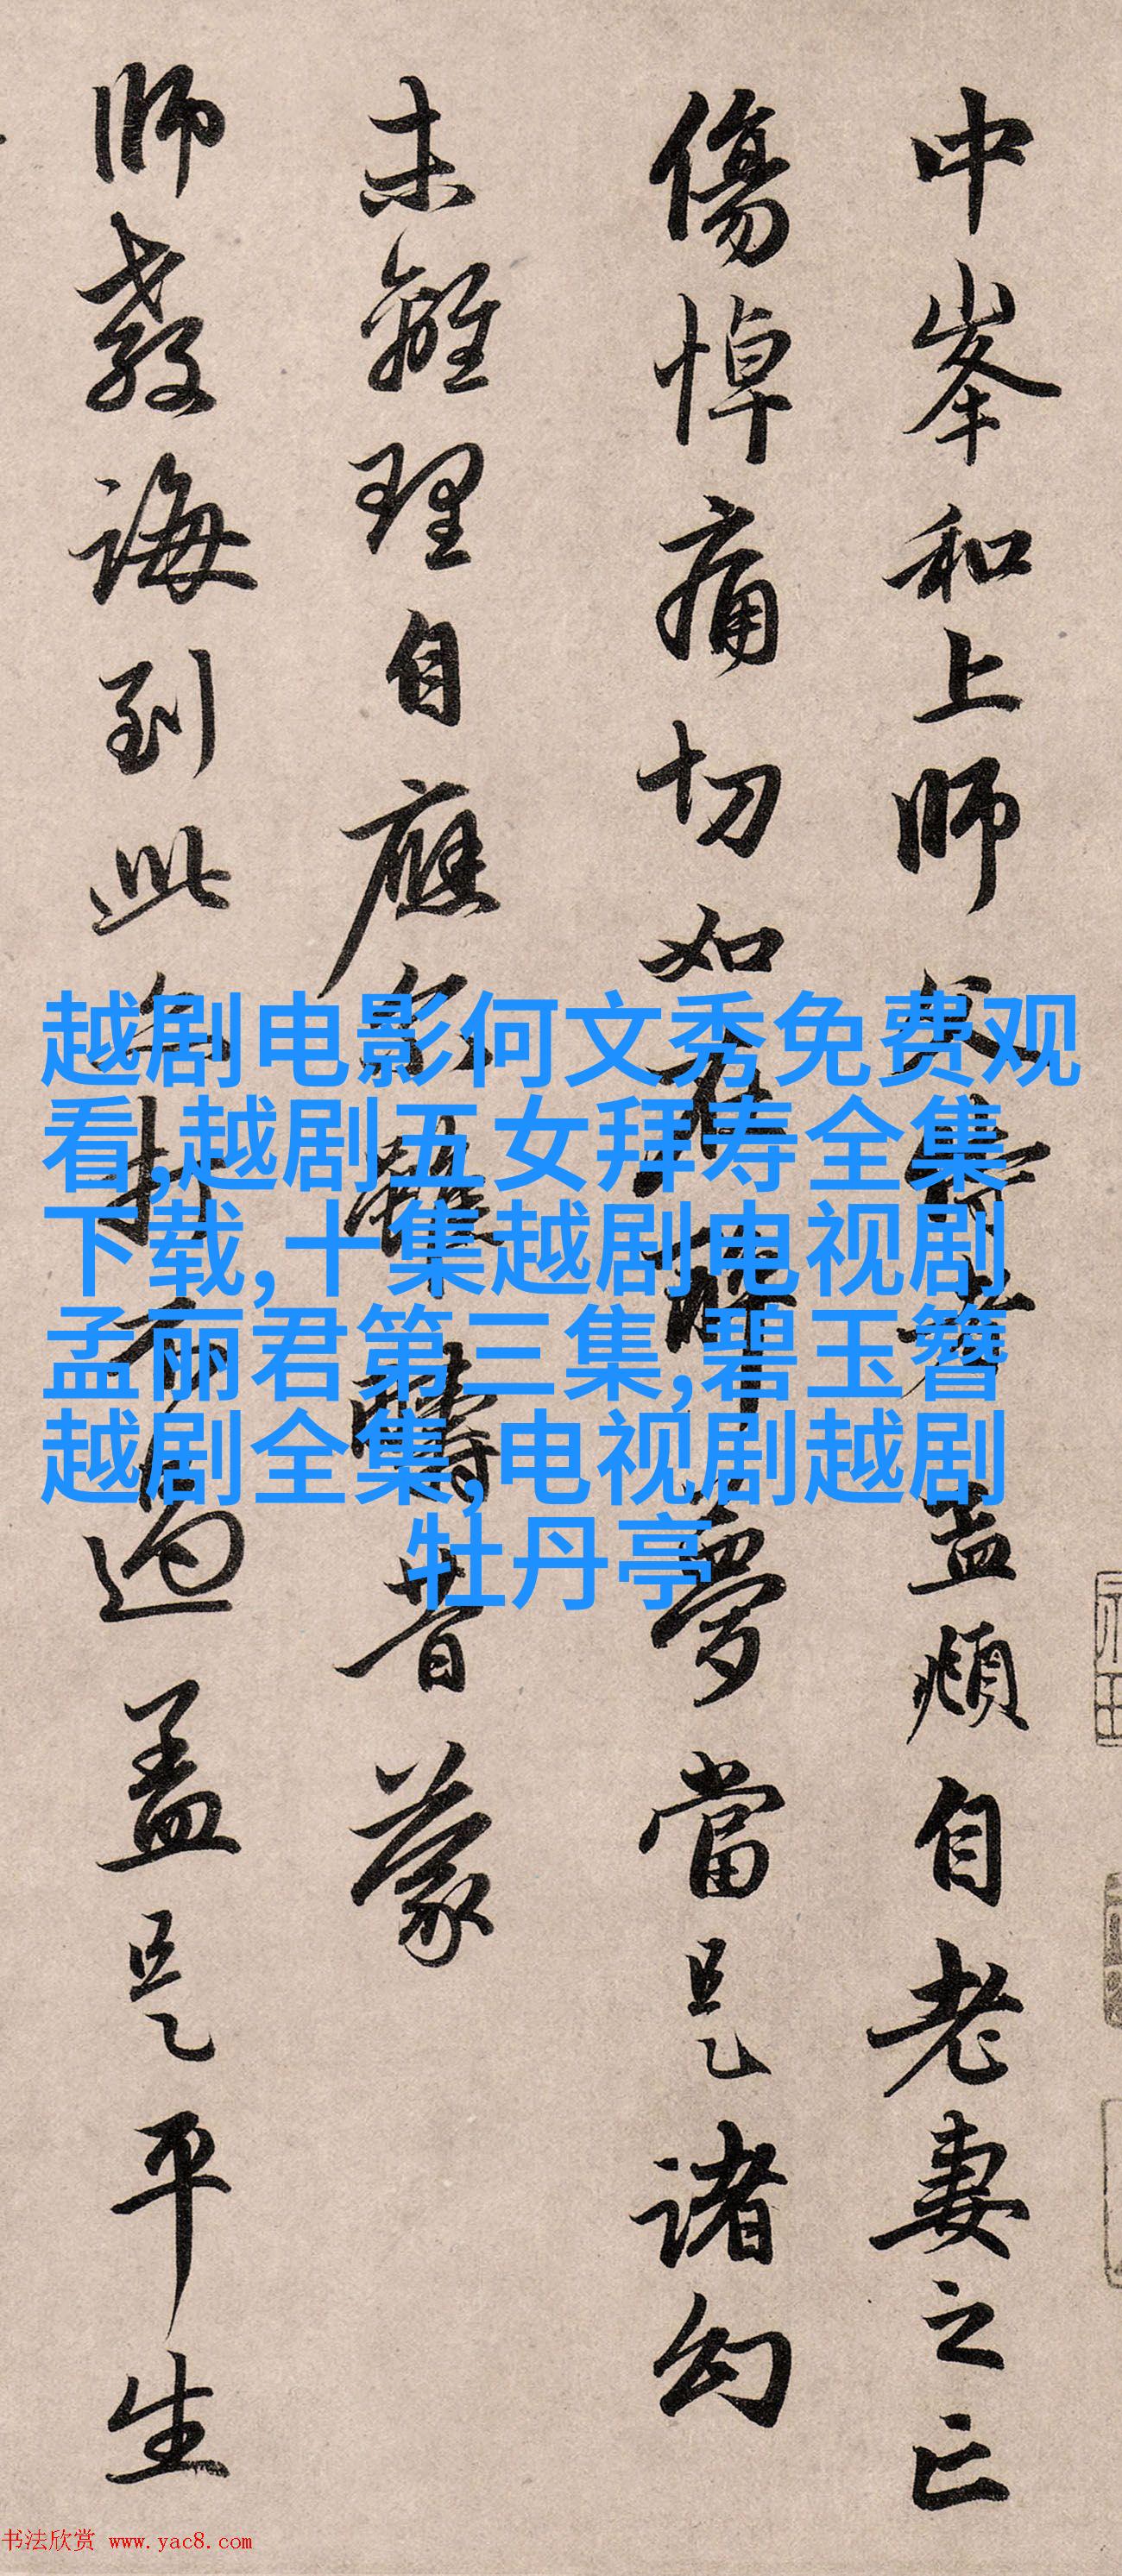 中峯和上師父侍者孟頫自老妻之亡
傷悼痛切如在醉夢當是諸幻
未離理自應尔雖疇昔蒙
師教誨到此亦打不過盖是平生
越剧电影何文秀免费观
看,越剧五女拜寿全集
下载,十集越剧电视剧
孟丽君第三集,碧玉簪
越剧全集,电视剧越剧
牡丹亭
书法欣赏 www.yac8.com